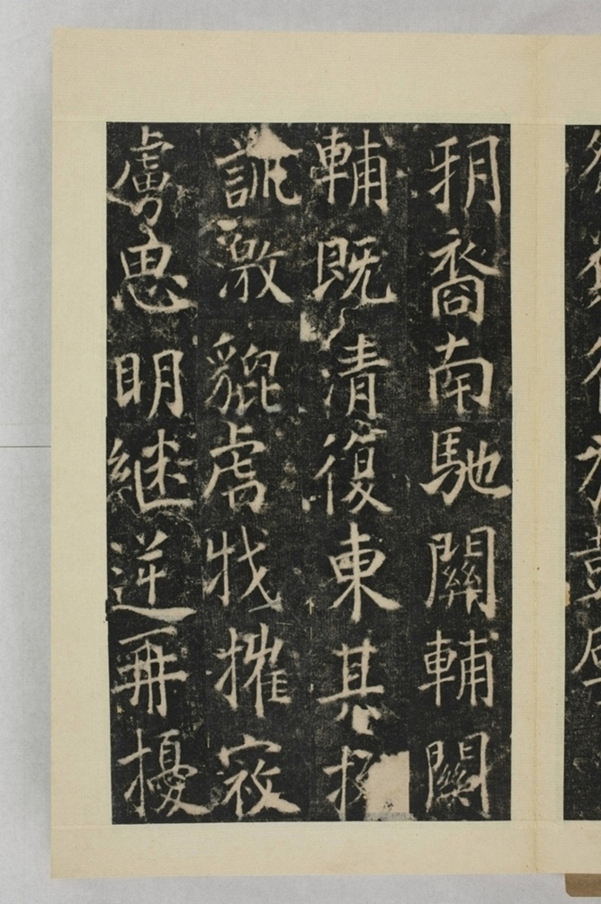 朔裔南馳關輔關
輔既清復東其
激貔虎戕摧寇
虜思明繼逆再擾